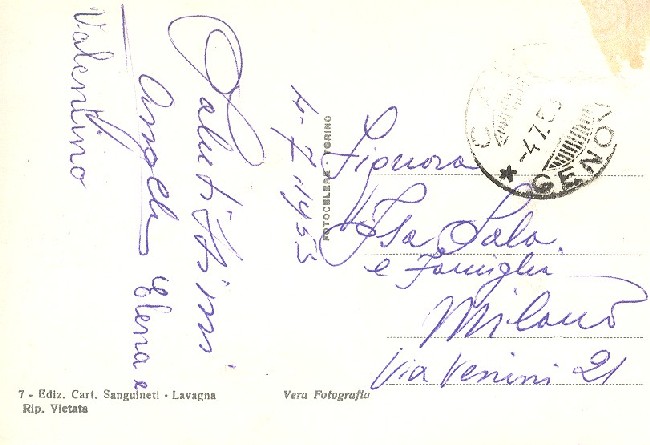 Salutissimi
Angela Elena e
Valentino
4-7-1953
Signora
Isa Sala.
e Famiglia
Milano
Via Venini 21
-4.7.5
* GENOV
FOTOCELERE TORINO
7 - Ediz. Cart. Sanguineti - Lavagna
Rip. Vietata
Vera Fotografia